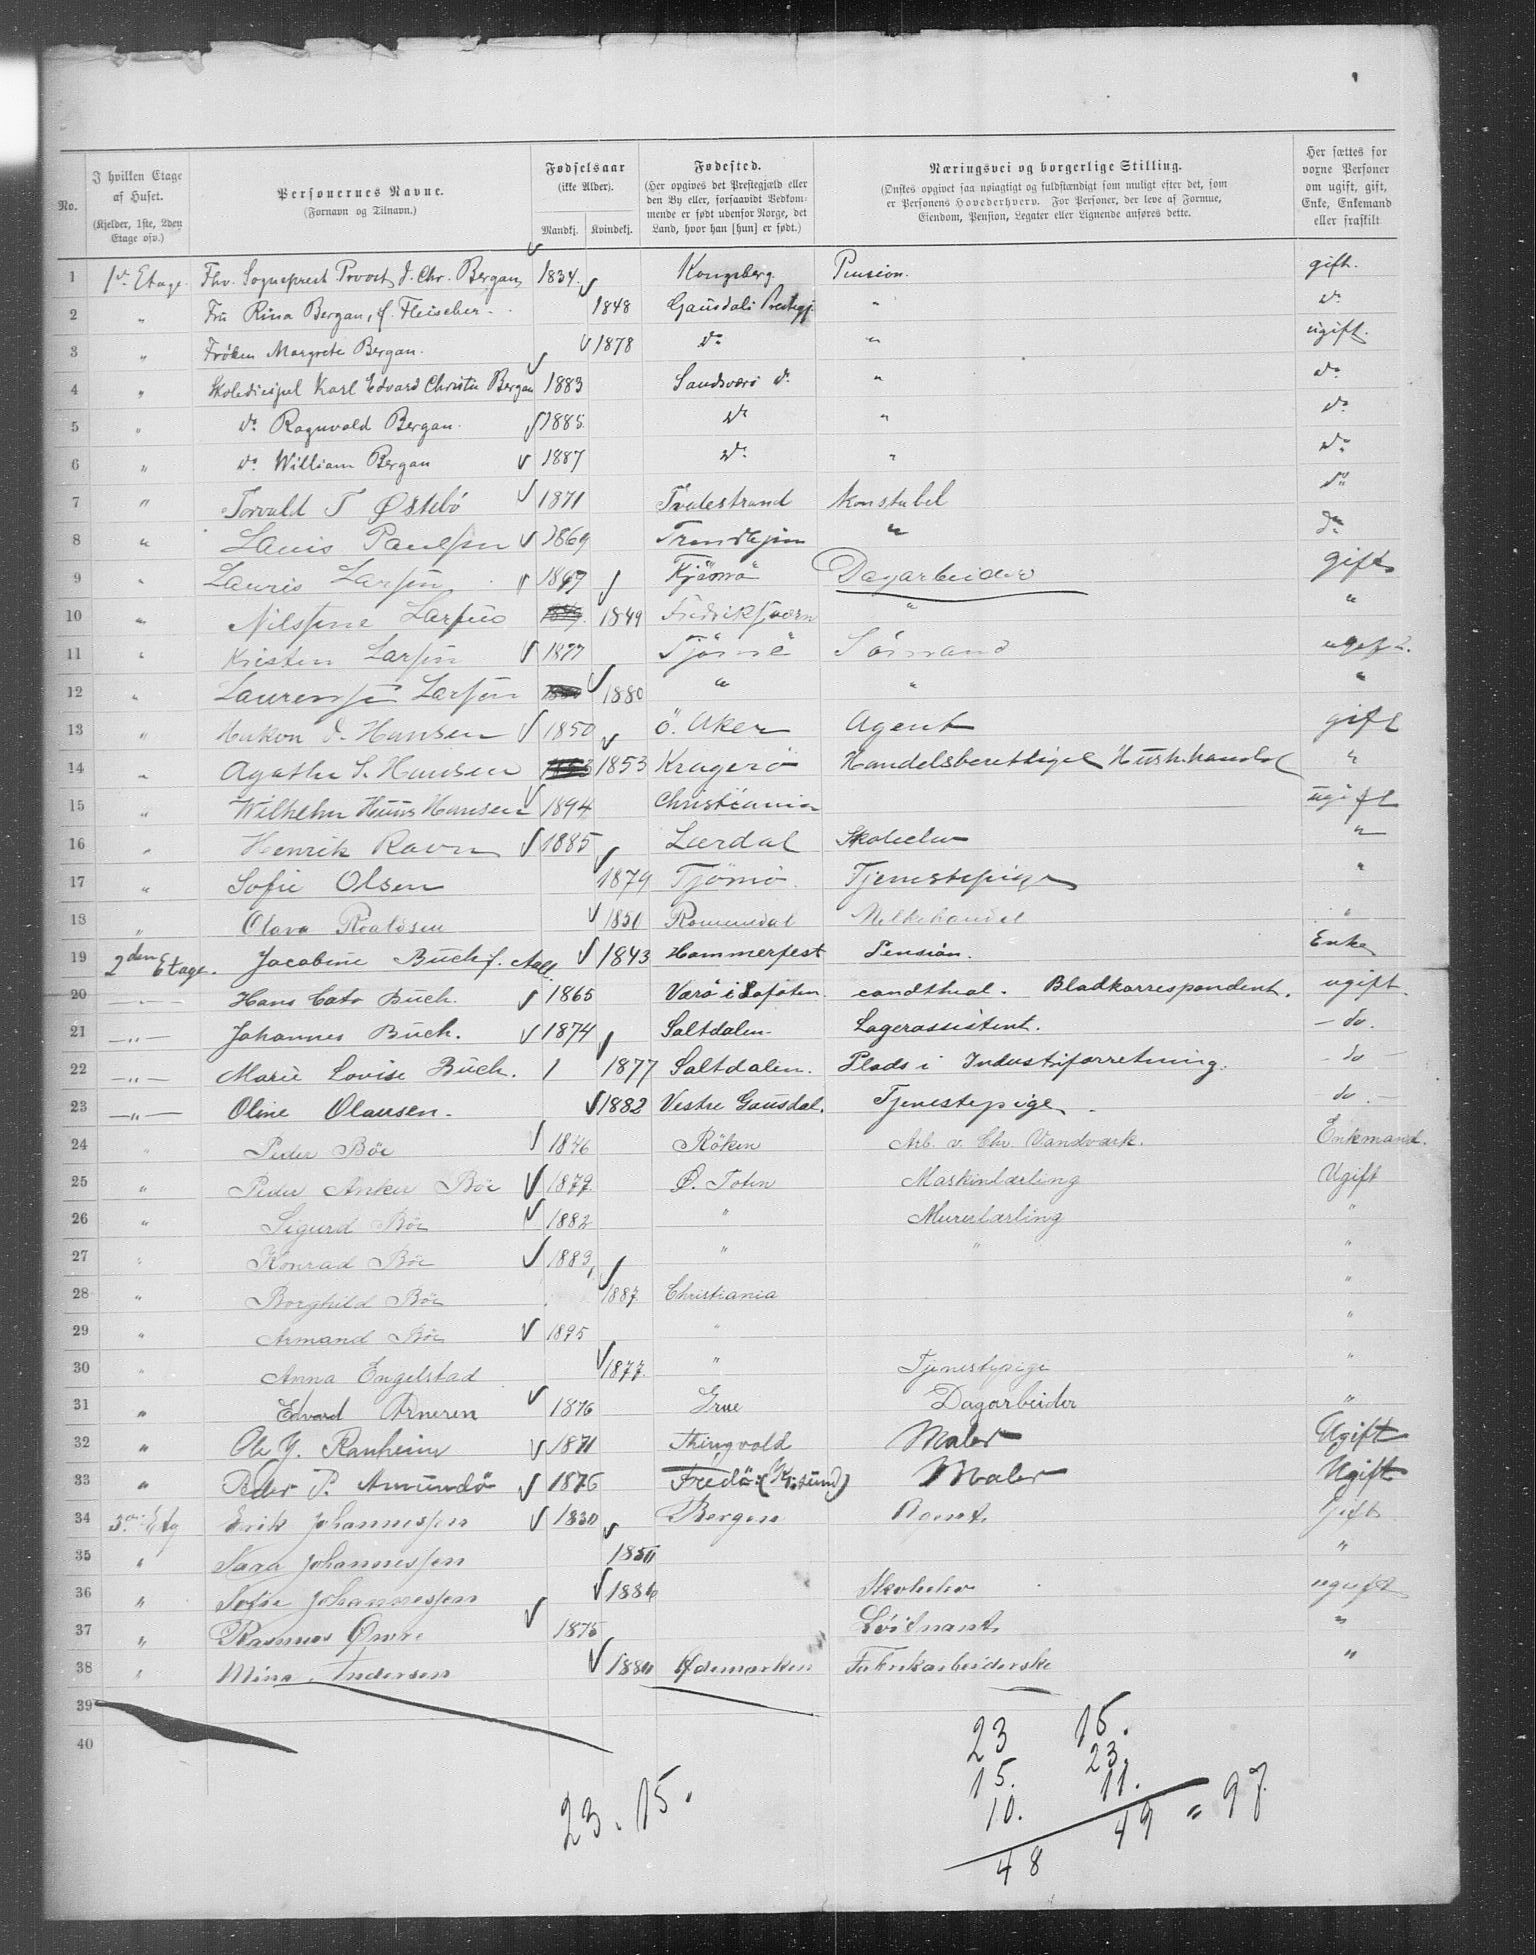 No.
I hvilken Etage af Huset. (Kjelder, 1ste, 2den Etage osv.)
Personernes Navne. (Fornavn og Tilnavn.)
Fødselsaar (ikke Alder). Mandkj. Kvindekj.
Fødested. (Her opgives det Prestegjæld eller den By eller, forsaavidt Vedkommende er født udenfor Norge, det Land, hvor han [hun] er født.)
Næringsvei og borgerlige Stilling. (Ønskes opgivet saa nøiagtigt og fuldstændigt som muligt efter det, som er Personens Hovederhverv. For Personer, der leve af Formue, Eiendom, Pension, Legater eller Lignende anføres dette.
Her sættes for vorne Personer om ugift, gift, Enke, Enkemand eller fraskilt
1 1ste Etage. Fhv. Sogneprest Provst J. Chr. Bergan 1834. Kongsberg Pension. gift.
2 " Fru Rina Bergan, f. Fleischer. 1848 Gausdals Prestegj. " do
3 " Frøken Margrete Bergan. 1878 do " ugift.
4 " Skoledisipel Karl Edvard Christie Bergan 1883 Sandsværs do " do
5 " do Ragnvald Bergan. 1885 do " do
6 " do William Bergan 1887 do " do
7 " Torvald T Østebö 1871 Tvedestrand Konstabel do
8 " Lauis Paulsen 1869 Trondhjem " do
9 " Lauris Larsen 1847 Tjömö Dagarbeider gift
10 " Nilssine Larsen 1849 Fredriksværn " "
11 " Kristen Larsen 1877 Tjömö Sömand ugift.
12 " Laurensse Larsen 1880 " " "
13 " Hakon J. Hansen 1850 Ö. Aker Agent gift
14 " Agathe S. Hansen 1853 Kragerö Handelsberettiget Hush.handel "
15 " Wilhelm Huus Hansen 1894 Christiania ugift
16 " Henrik Ravn 1885 Lærdal Skoleelev "
17 " Sofie Olsen 1879 Tjömö Tjenestepige "
18 " Olava Roaldsen 1851 Rommedal Melkehandel "
19 2den Etage. Jacobine Buch f. Aall 1843 Hammerfest Pension. Enke
20 — Hans Cato Buch. 1865 Værö i Lofoten. cand theol. Bladkorrespondent. ugift.
21 —"— Johannes Buch. 1874 Saltdalen. Lagerassistent. — do.
22 —"— Marie Lovise Buch. 1877 Saltdalen. Plads i Industriforretning. — do —
23 —"— Oline Olausen. 1882 Vestre Gausdal. Tjenestepige. do. —
24 " Peder Böe 1846 Röken Arb. v. Chr. Vandværk. Enkemand.
25 " Peder Anker Böe 1879. Ø. Toten Maskinlærling Ugift
26 " Sigurd Böe 1882 " Murerlærling "
27 " Konrad Böe 1883, " " "
28 " Borghild Böe 1887. Christiania "
29 " Armand Böe 1895 " "
30 " Anna Engelstad 1877. " Tjenestepige "
31 " Edvard Arneren 1876 Grue Dagarbeider "
32 " Ole Y. Ranheim 1871 Thingvold Maler Ugift
33 " Peder P. Amundö 1876 Fredö (Kr.sund) Maler Ugift
34 3die Etg Erik Johannessen 1830 Bergen Agent. Gift
35 " Sara Johannessen 1850 "
36 " Sofie Johannessen 1886 Skoleelev ugift
37 " Rasmus Omre 1875 Löitnant. "
38 " Mina Andersen 1880 Ødemarken Fabrikarbeiderske "
39
40
23 15.
15. 23.
10. 11.
48 49 = 97
23. 15.